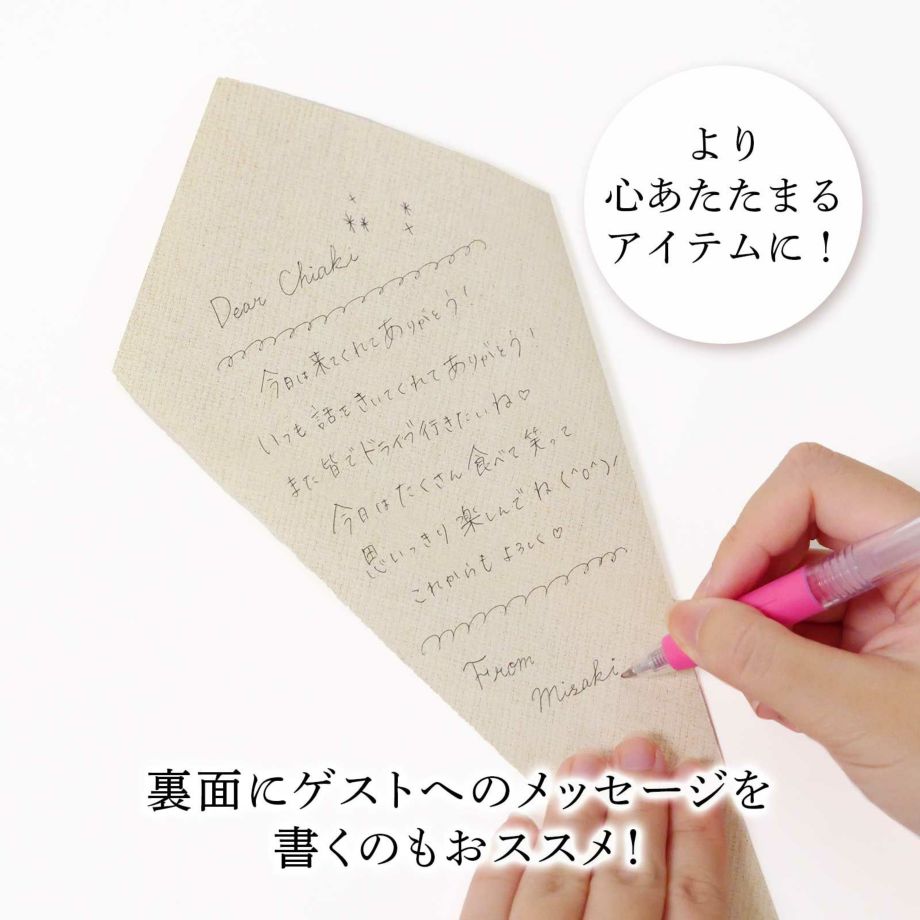 より
心あたたまる
アイテムに！
Dear Chiaki
今日は来てくれてありがとう！
いつも話をきいてくれてありがとう！
また皆でドライブ行きたいね♡
今日はたくさん食べて笑って
思いっきり楽しんでね(^O^)/
これからもよろしく♡
From
Misaki
裏面にゲストへのメッセージを
書くのもおススメ！